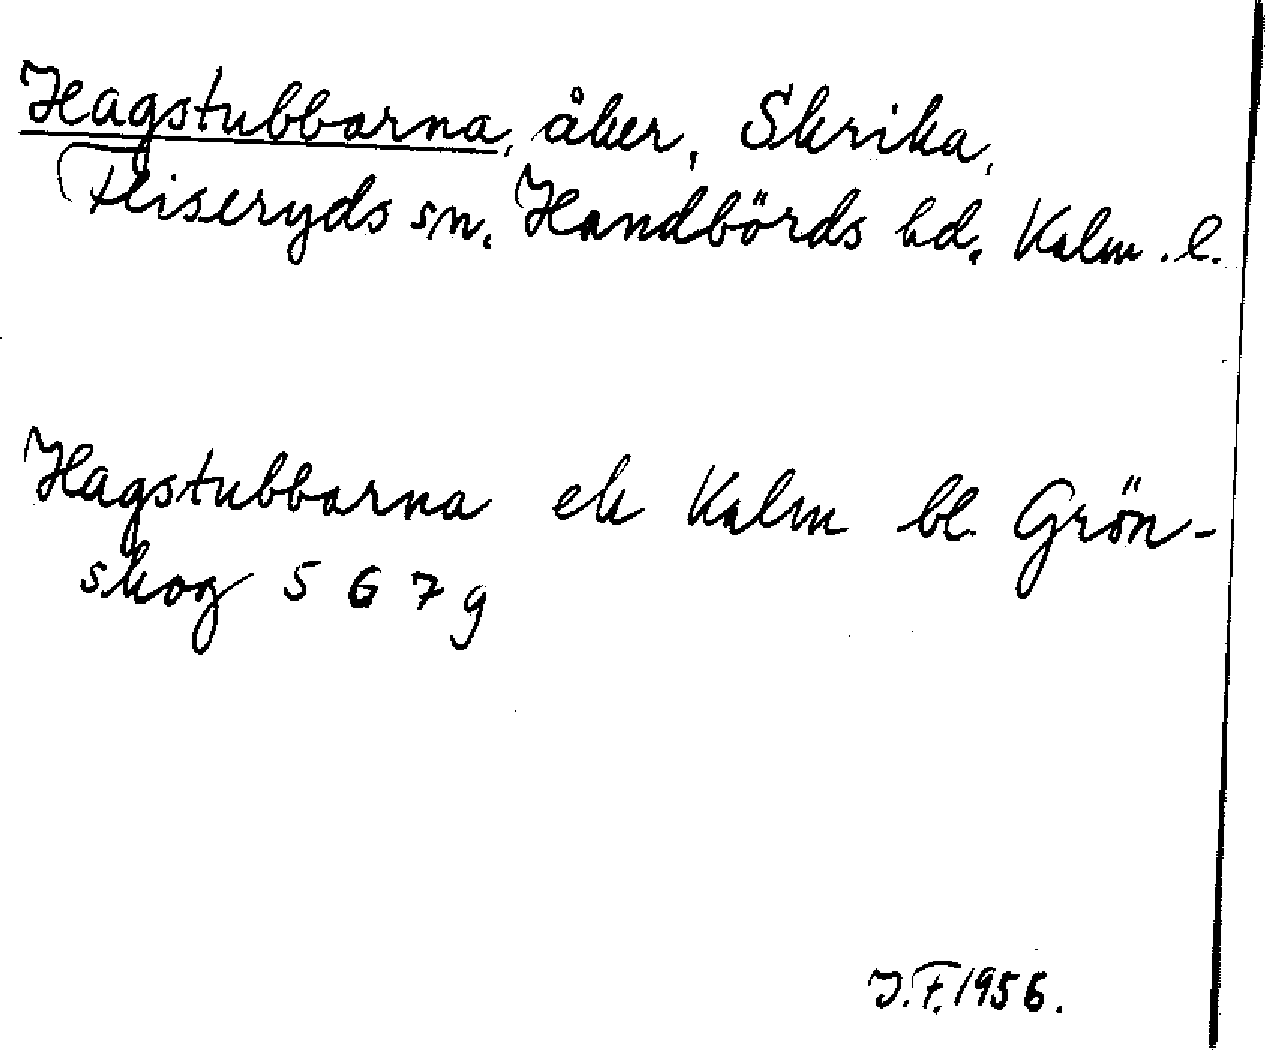 Hagstubbarna, åker, Skrika,
Fliseryds sn. Handbörds hd. Kalm. l.
Hagstubbarna ek Kalm bl Grön-
skog 5 6 7 g
J.F. 1956.